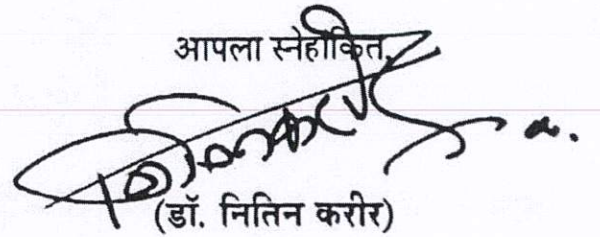 आपला स्नेहांकित,
(डॉ. नितिन करीर)